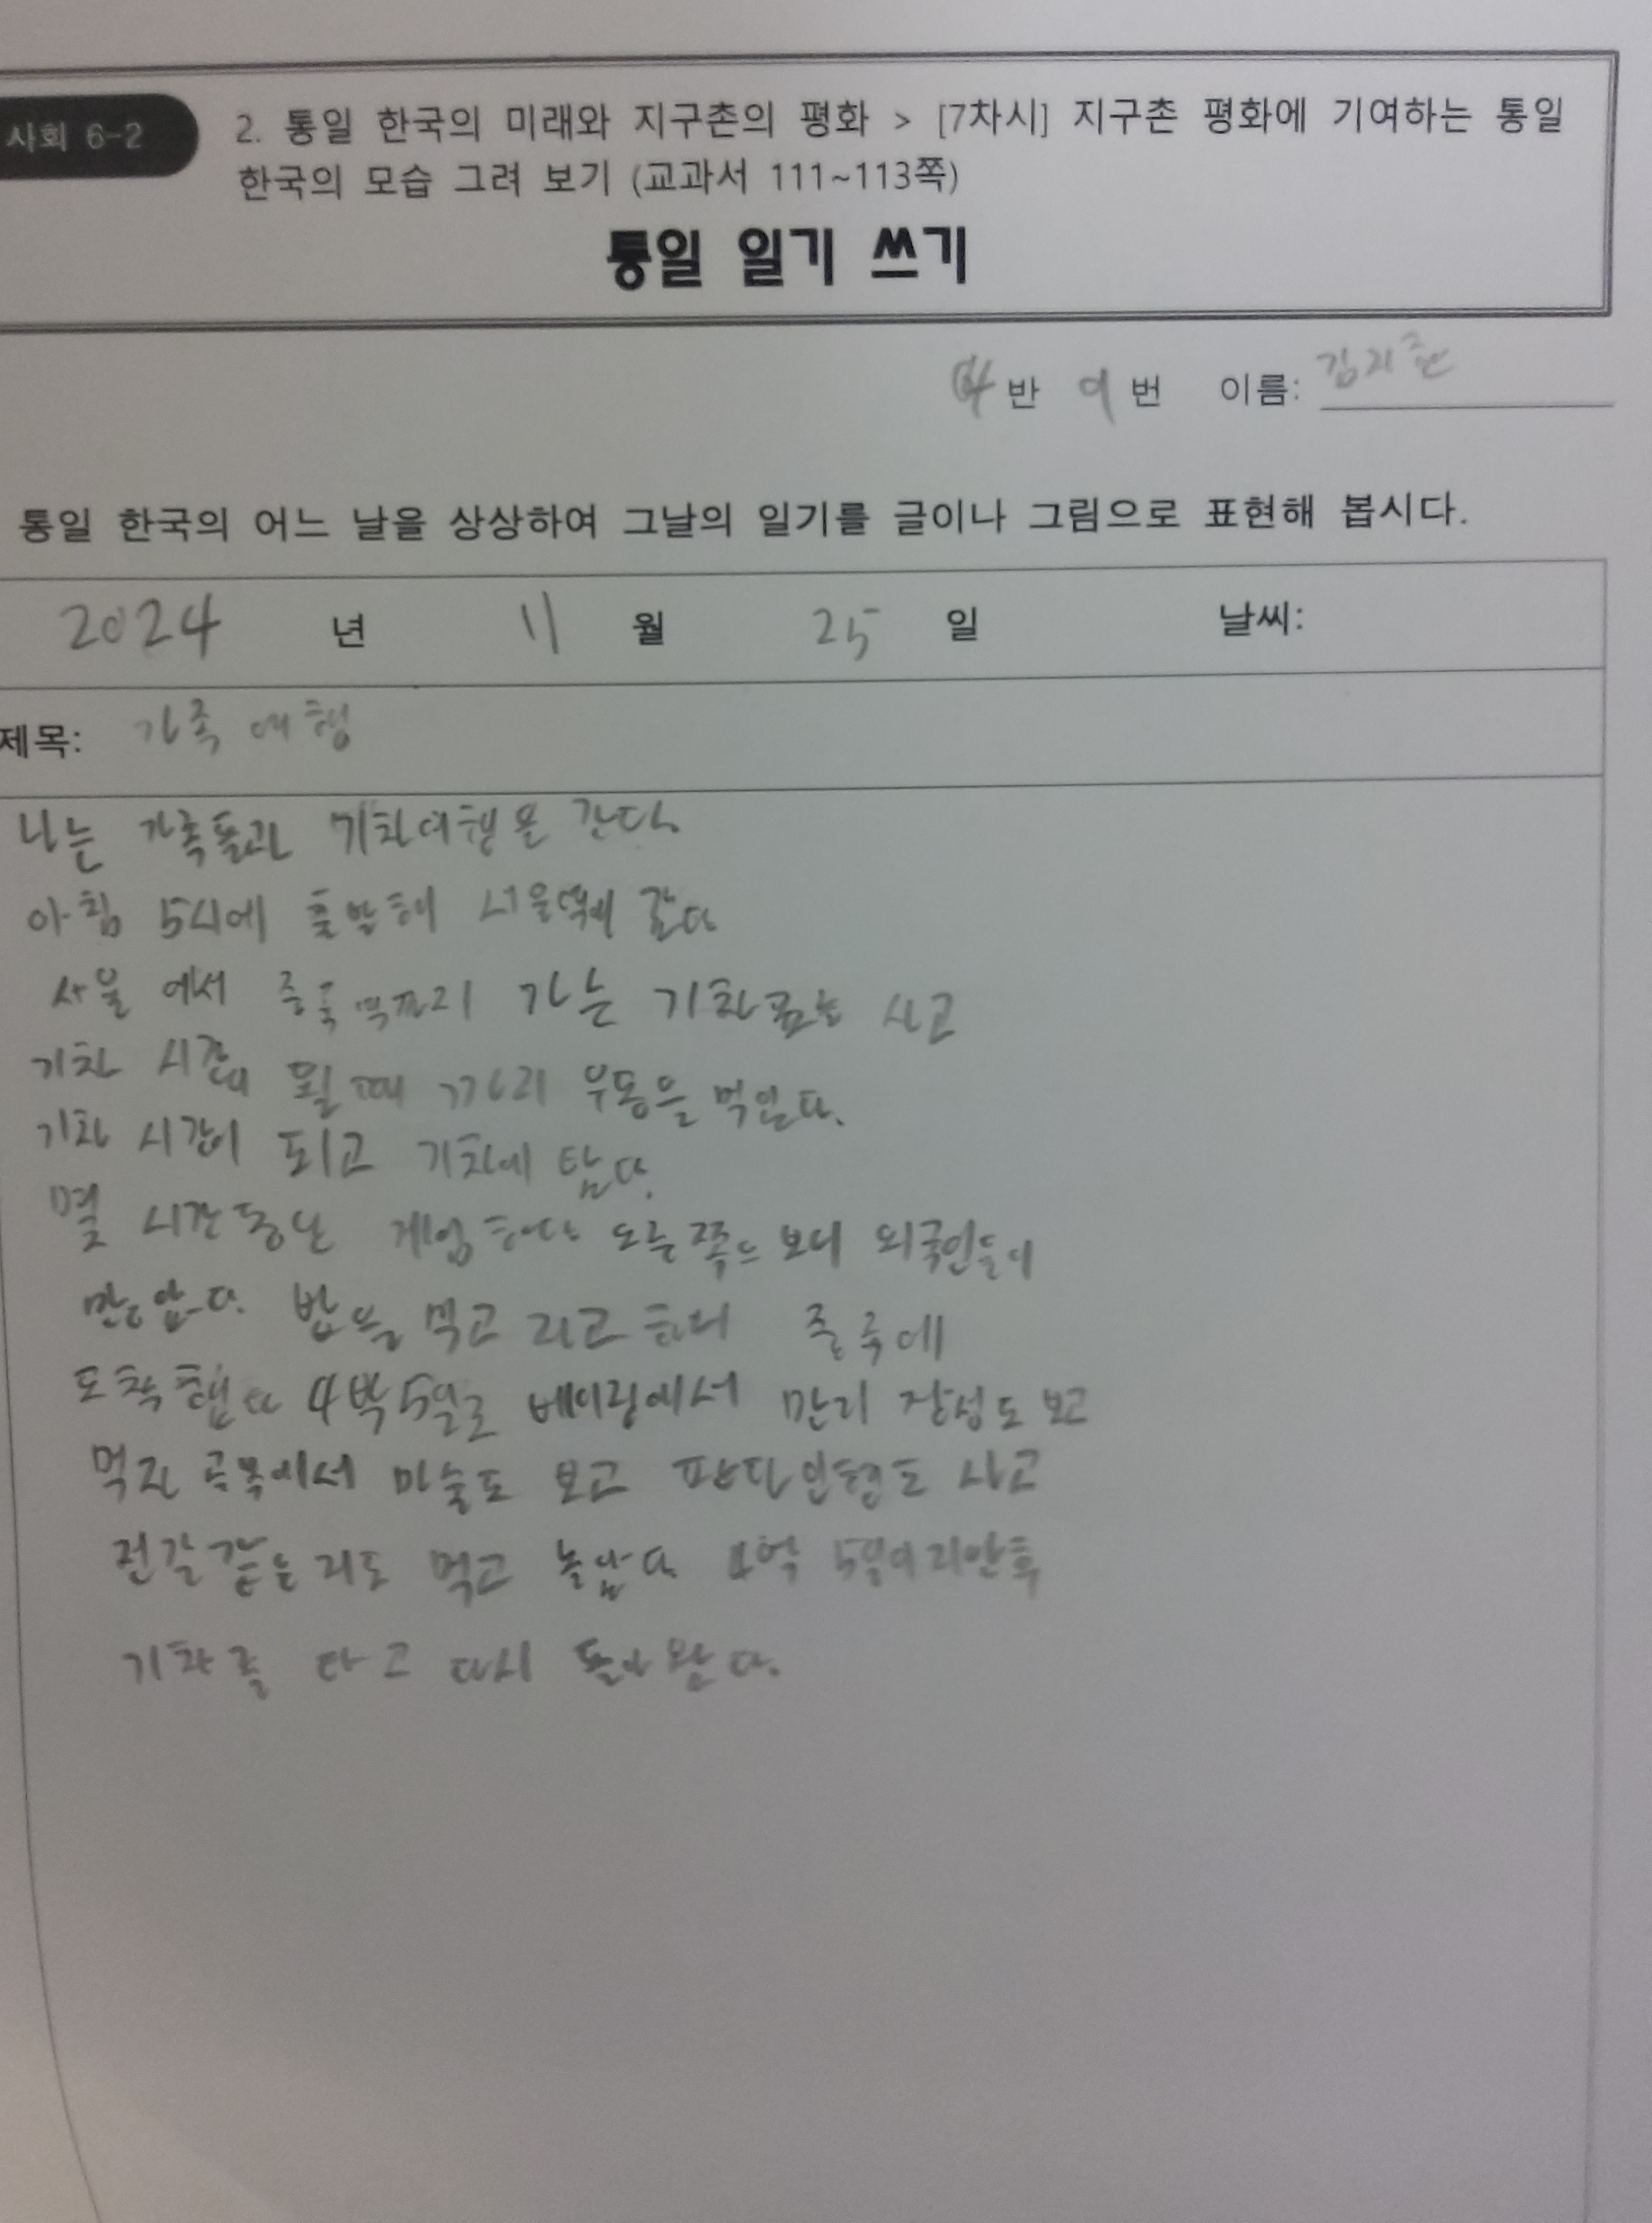 사회 6-2
2. 통일 한국의 미래와 지구촌의 평화 > [7차시] 지구촌 평화에 기여하는 통일
한국의 모습 그려 보기 (교과서 111~113쪽)
통일 일기 쓰기
반 번 이름: 김지훈
통일 한국의 어느 날을 상상하여 그날의 일기를 글이나 그림으로 표현해 봅시다.
2024 년 11 월 25 일 날씨:
제목: 가족 여행
나는 가족들과 기차여행을 간다.
아침 5시에 출발해 서울역에 갔다
서울에서 중국역까지 가는 기차표를 사고
기차 시간이 될 때 까지 우동을 먹었다.
기차 시간이 되고 기차에 탔다.
몇 시간동안 게임하다 보니 외국인들이
많았다. 밥을 먹고 자고 하니 중국에
도착했다 4박5일로 베이징에서 만리 장성도 보고
먹자 골목에서 마술도 보고 판다인형도 사고
전갈같은 먹고 놀았다. 5일이 지난후
기차를 타고 다시 돌아 왔다.